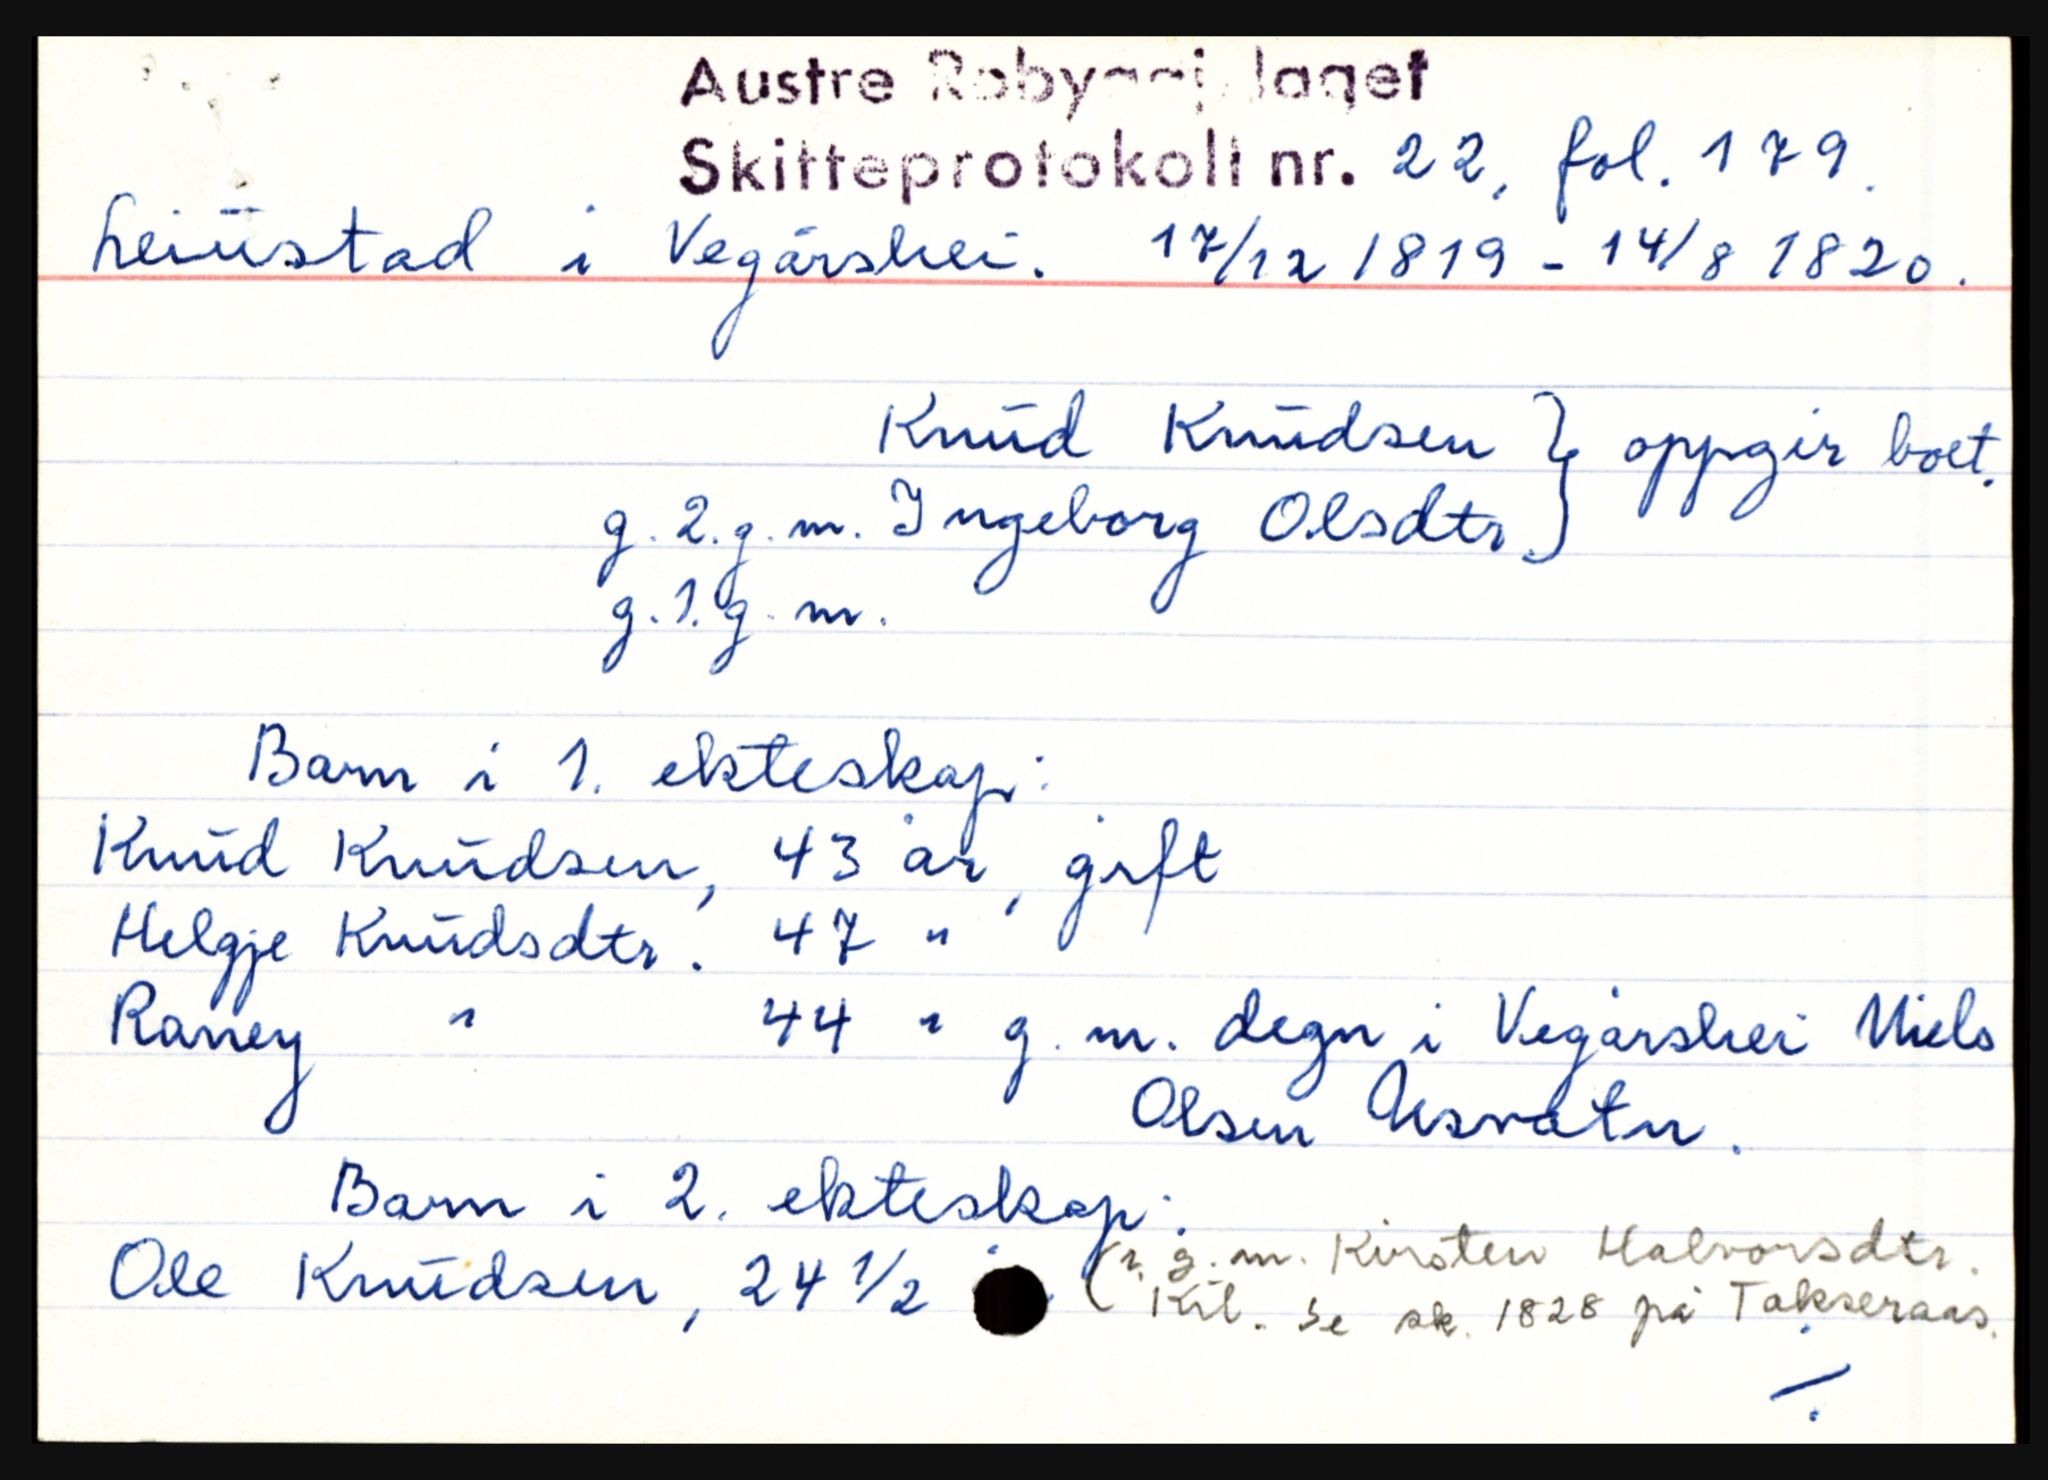 Austre Robyggjelaget
Skifteprotokoll nr. 22, fol. 179.
Leiüstad i Vegårshei. 17/12 1819 - 14/8 1820.
Knud Knudsen } oppgir boet.
g. 2. g. m. Ingeborg Olsdtr.
g. 1. g. m.
Barn i 1. ekteskap:
Knud Knudsen, 43 år, gift
Helgje Knudsdtr. 47 "
Raney " 44 " g. m. degn i Vegårshei Niels
Olsen Usvatn.
Barn i 2. ekteskap:
Ole Knudsen, 24 1/2 (g. m. Kirsten Halvorsdtr.
Kil. Se sk. 1828 på Takseraas.